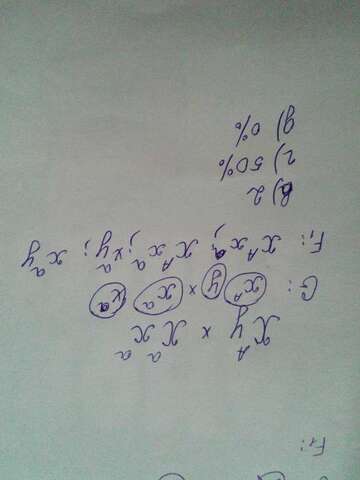 F₁:
Xᴬ y × Xᵃ Xᵃ
G: Xᴬ y × Xᵃ Xᵃ
F₁: XᴬXᵃ; XᴬXᵃ; Xᵃy; Xᵃy
в) 2
г) 50%
д) 0%